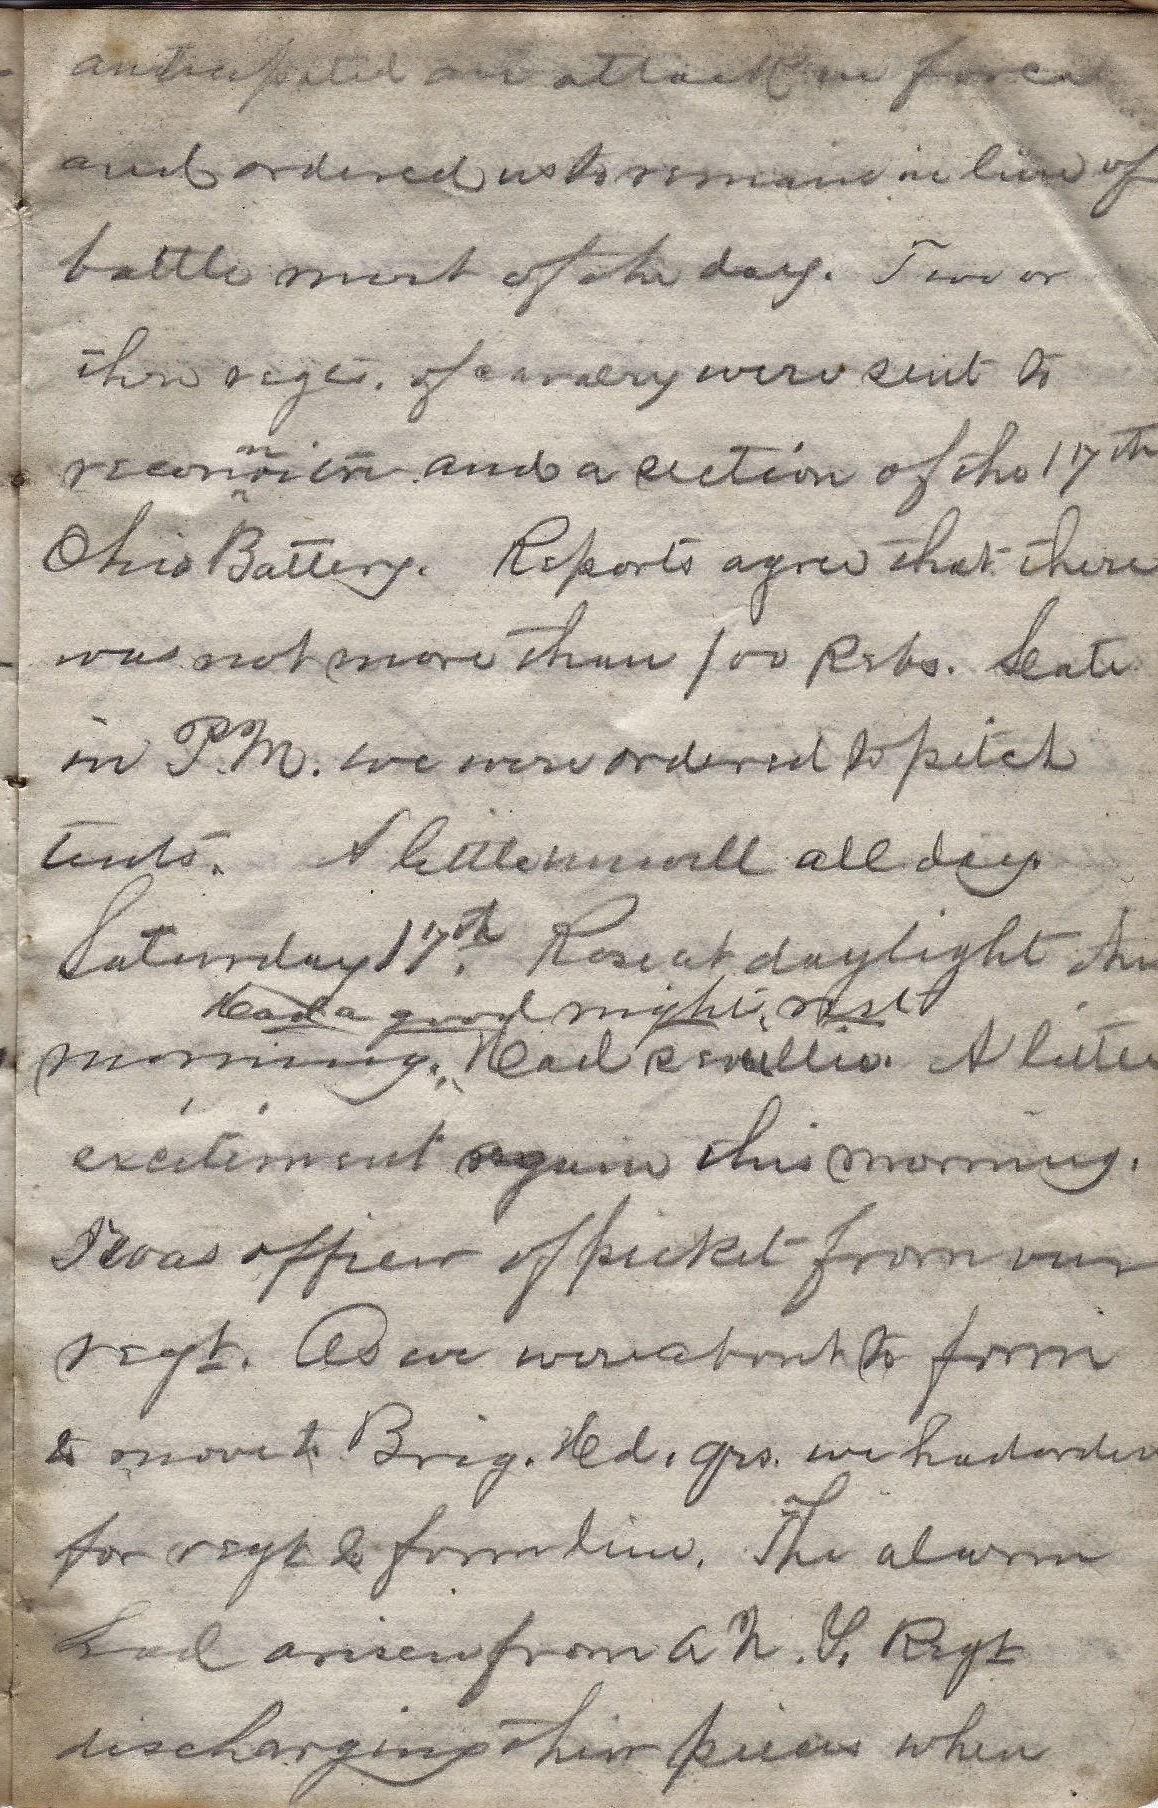 anticipated an attack in force
and ordered us to remain in line of
battle most of the day. Two or
three regts. of cavalry were sent to
reconnoitre and a section of the 17th
Ohio Battery. Reports agree that there
was not more than 100 Rebs. Late
in P.M. we were ordered to pitch
tents. A little unwell all day.
Saturday 17th. Rose at daylight this
Had a good nights rest
morning. Had reveille. A little
excitement again this morning.
I was officer of picket from our
regt. As we were about to form
& move to Brig. Hd. qrs. we had order
for regt to form line. The alarm
had arisen from a N.Y. Regt
discharging their pieces when